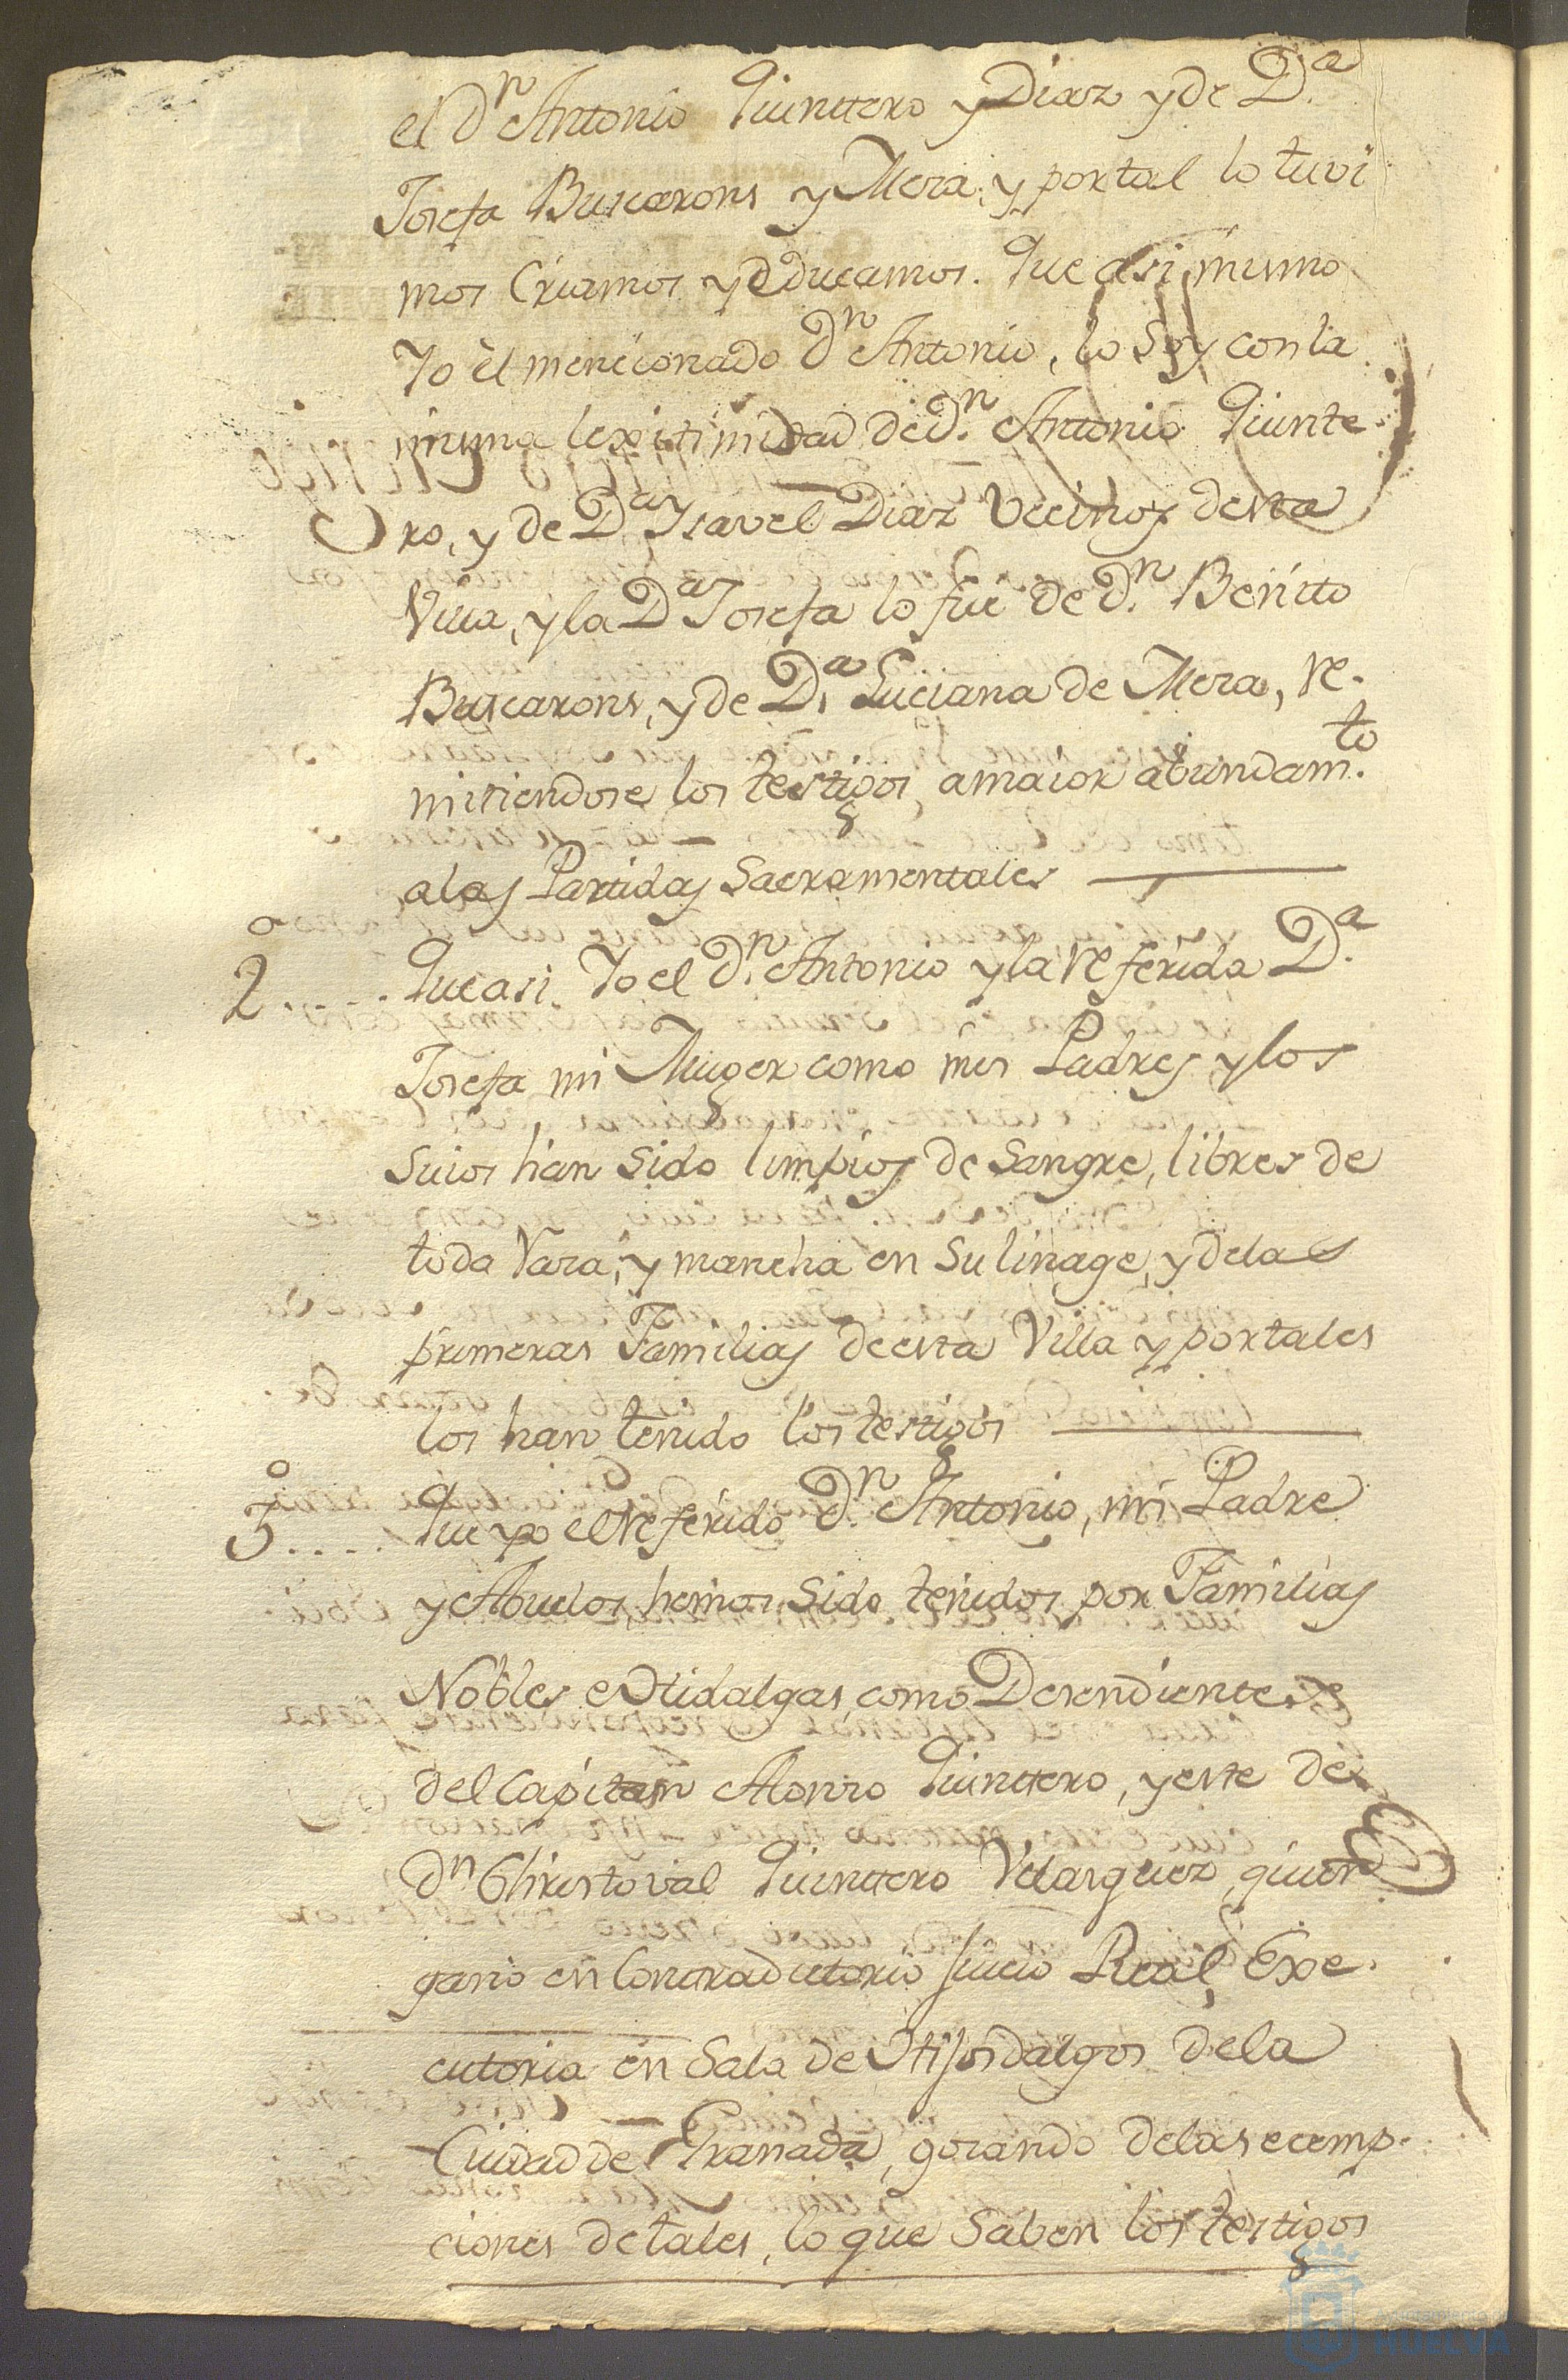 el Dn Antonio Quinttero y Diaz y de Da.
Josefa Buscarons y Mera, y por tal lo tuvi
mos Criamos y educamos. Que asi mismo
Yo el mencionado Dn Antonio, lo soy con la
misma lexitimidad de Dn. Antonio Quinte
ro, y de Da Ysavel Diaz Vecinos desta
Villa, y la Da Josefa lo fue de Dn. Benitto
Buscarons, y de Da. Luciana de Mera, re-
mitiendose los testigos, a maior abundamto.
a las Partidas Sacramentales
2o.... Que asi Yo el Dn. Antonio y la referida Da.
Josefa mi Muger como mis Padres y los
Suios han sido limpios de Sangre, libres de
toda Vara, y mancha en su linage, y de las
primeras Familias de esta Villa y por tales
los han tenido los testigos
3o.... Que yo el referido Dn. Antonio, mi Padre
y Abuelos, hemos sido tenidos por Familias
Nobles e Hidalgas, como Desendientes
del Capitan Alonso Quinttero, y este de
Dn Christoval Quinttero Velasquez, quien
gano en Contradictorio Juicio Real Exe-
cutoria en Sala de Hijosdalgos de la
Ciudad de Granada, gosando de las ecemp-
ciones de tales, lo que saben los testigos
Ayuntamiento de
HUELVA